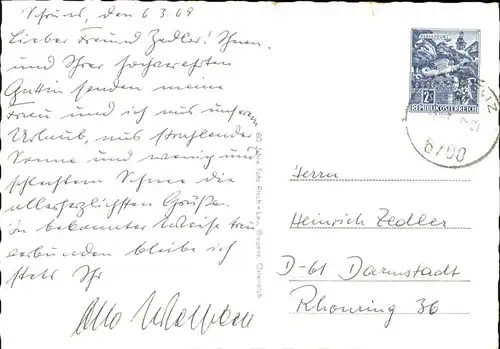 Schruns, den 6 3. 69
Lieber Freund Zedler! Ihnen
und Ihrer hochverehrten
Gattin senden meine
Frau und ich aus unserem
Urlaub, aus strahlender
Sonne und wenig und
schlechtem Schnee die
allerherzlichsten Grüße.
In bekannter Weise treu
verbunden bleibe ich
stets Ihr
Otto
60 Jahre Foto Risch-Lau, Bregenz, Österreich
REPUBLIK ÖSTERREICH
6790
Herrn
Heinrich Zedler
D-61 Darmstadt
Rhönring 36